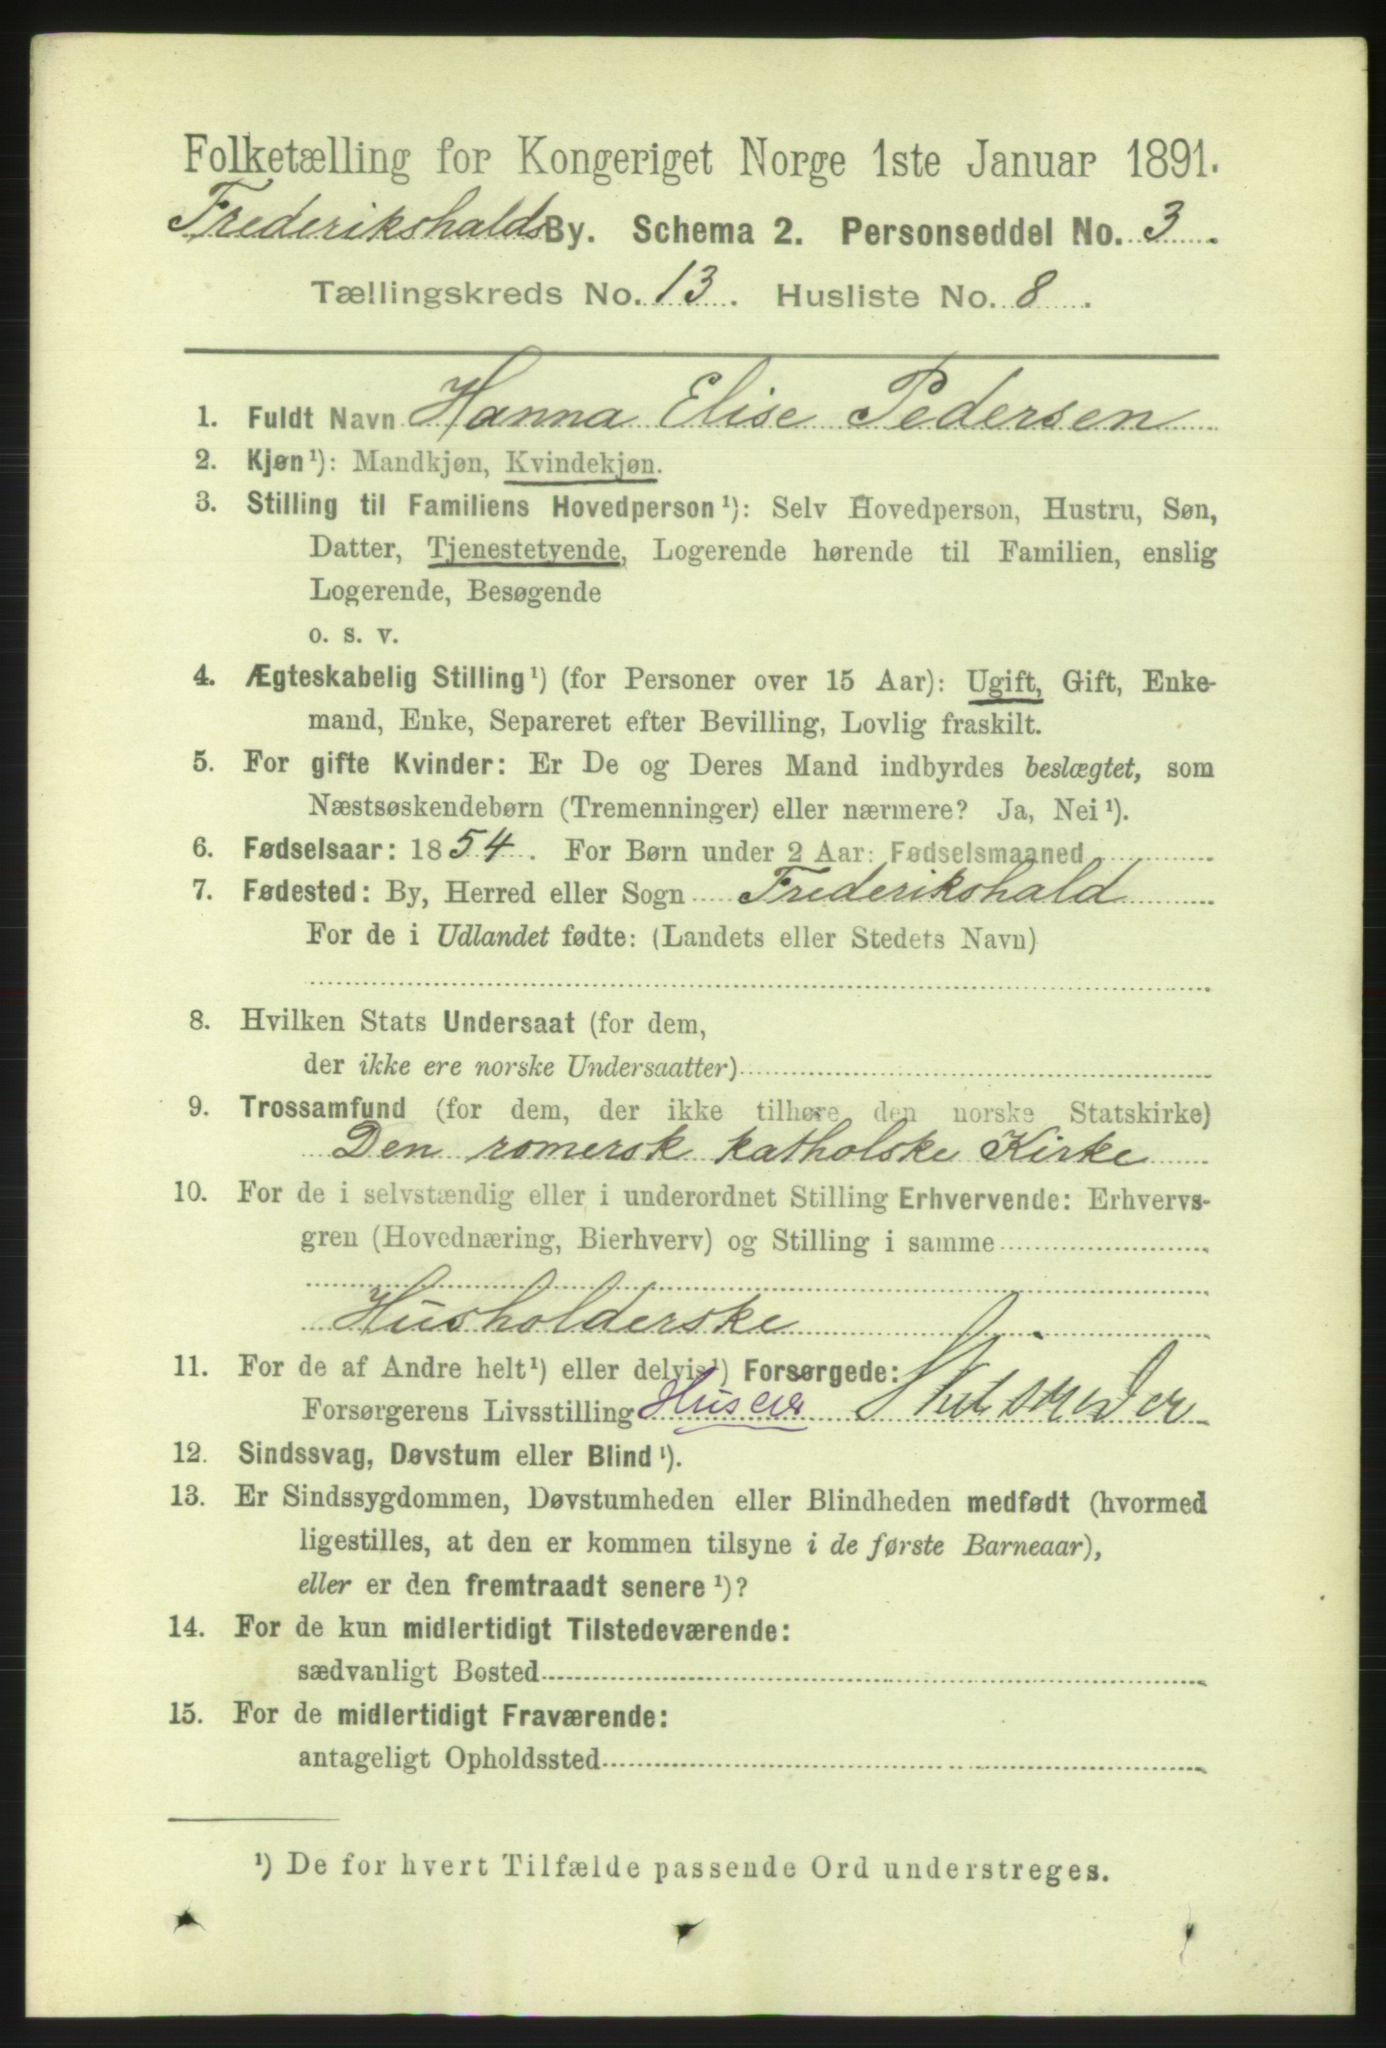 Folketælling for Kongeriget Norge 1ste Januar 1891.
Frederikshalds By. Schema 2. Personseddel No. 3.
Tællingskreds No. 13. Husliste No. 8.
1. Fuldt Navn Hanna Elise Pedersen
2. Kjøn¹): Mandkjøn, Kvindekjøn.
3. Stilling til Familiens Hovedperson¹): Selv Hovedperson, Hustru, Søn,
Datter, Tjenestetyende, Logerende hørende til Familien, enslig
Logerende, Besøgende
o. s. v.
4. Ægteskabelig Stilling¹) (for Personer over 15 Aar): Ugift, Gift, Enke-
mand, Enke, Separeret efter Bevilling, Lovlig fraskilt.
5. For gifte Kvinder: Er De og Deres Mand indbyrdes beslægtet, som
Næstsøskendebørn (Tremenninger) eller nærmere? Ja, Nei¹).
6. Fødselsaar: 1854. For Børn under 2 Aar: Fødselsmaaned
7. Fødested: By, Herred eller Sogn Frederikshald
For de i Udlandet fødte: (Landets eller Stedets Navn)
8. Hvilken Stats Undersaat (for dem,
der ikke ere norske Undersaatter)
9. Trossamfund (for dem, der ikke tilhøre den norske Statskirke)
Den romersk katholske Kirke
10. For de i selvstændig eller i underordnet Stilling Erhvervende: Erhvervs-
gren (Hovednæring, Bierhverv) og Stilling i samme
Husholderske
11. For de af Andre helt¹) eller delvis¹) Forsørgede:
Forsørgerens Livsstilling Huseier
12. Sindssvag, Døvstum eller Blind¹).
13. Er Sindssygdommen, Døvstumheden eller Blindheden medfødt (hvormed
ligestilles, at den er kommen tilsyne i de første Barneaar),
eller er den fremtraadt senere¹)?
14. For de kun midlertidigt Tilstedeværende:
sædvanligt Bosted
15. For de midlertidigt Fraværende:
antageligt Opholdssted
¹) De for hvert Tilfælde passende Ord understreges.